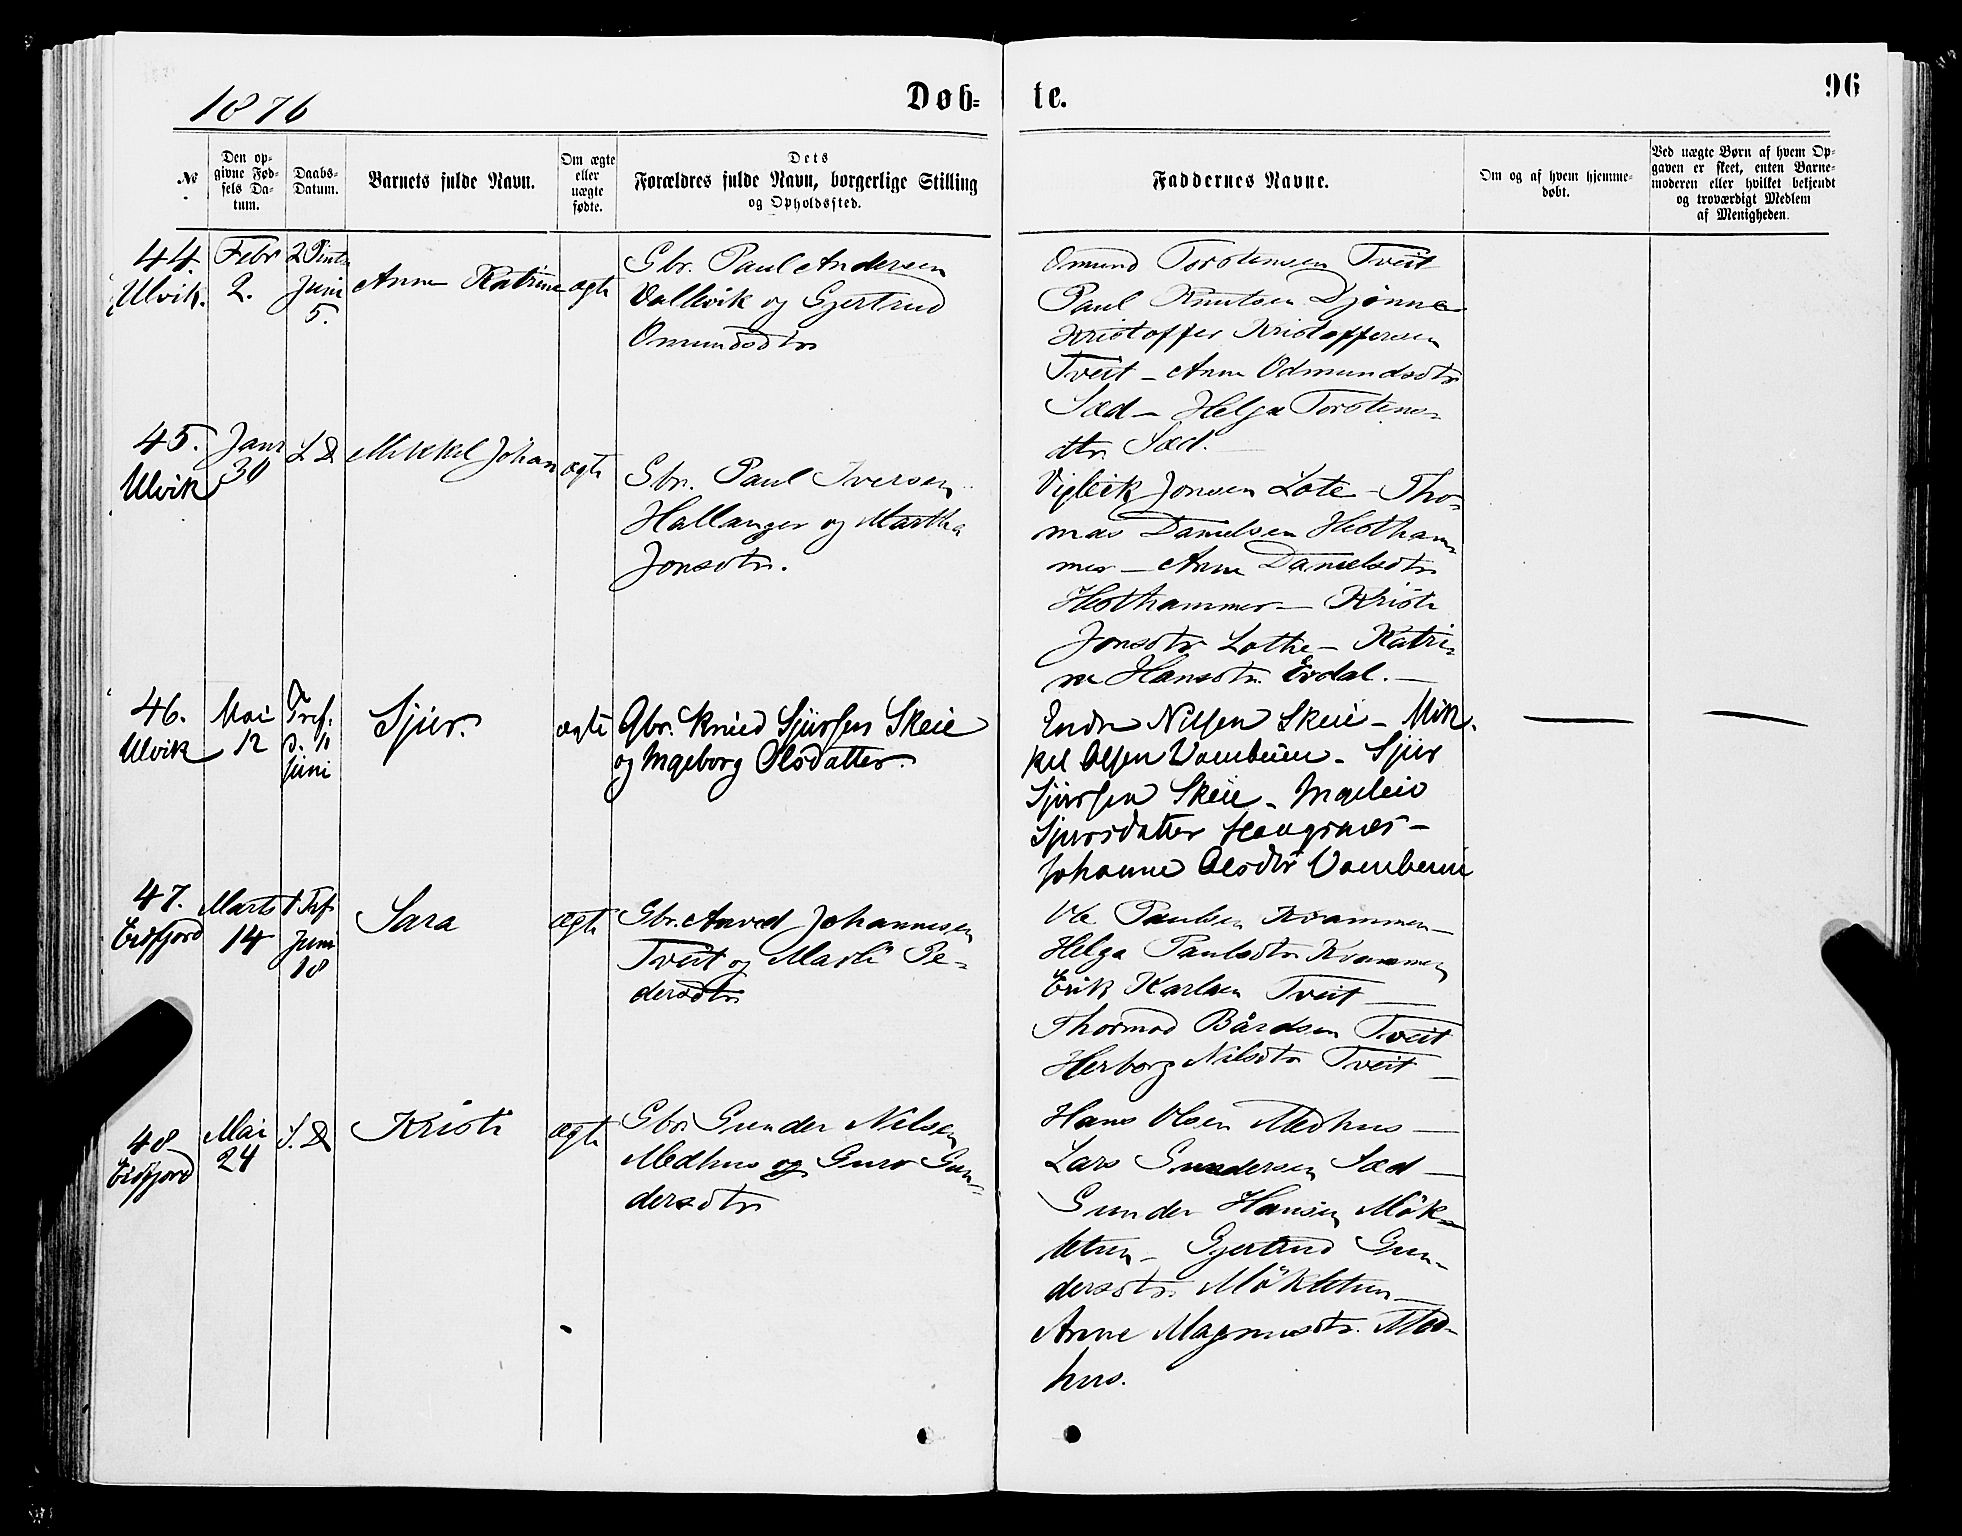 1876
Døb-
te.
96
№
Den op-
givne Fød-
sels Da-
tum.
Daabs-
Datum.
Barnets fulde Navn.
Om ægte
eller
uægte
fødte.
Dets
Forældres fulde Navn, borgerlige Stilling
og Opholdssted.
Faddernes Navne.
Om og af hvem hjemme-
døbt.
Ved uægte Børn af hvem Op-
gaven er skeet, enten Barne-
moderen eller hvilket bekjendt
og troværdigt Medlem
af Menigheden.
44.
Ulvik.
Febr
2.
2 Pints
Juni
5.
Anne Katrine
ægte
Gbr. Paul Andersen
Vallevik og Gjertrud
Omundsdtr
Omund Torstensen Tveit
Paul Knutsen Djønne
Kristoffer Kristoffersen
Tveit - Anne Odmundsdtr
Sæd - Helga Torstens-
dtr. Sæd.
45.
Ulvik
Janr
30
S D
Mikkel Johan
ægte
Gbr. Paul Iversen
Hallanger og Martha
Jonsdtr.
Vigleik Jonsen Lote - Tho-
mas Danielsen Hestham-
mer - Anne Danielsdtr
Hesthammer - Kristi
Jonsdtr Lothe - Katri-
ne Hansdtr. Erdal. -
46.
Ulvik
Mai
12
Tref.
Juni
Sjur.
ægte
Gbr. Knud Sjursen Skeie
og Ingeborg Olsdatter.
Endre Nilsen Skeie - Mik-
kel Olsen Vambeim - Sjur
Sjursen Skeie - Ingeleiv
Sjursdatter Haugsnæs -
Johanne Olsdtr Vambeim
47.
Eidfjord
Marts
14
1 Trf
Juni
18
Sara
ægte
Gbr. Anved Johannesen
Tveit og Marti Pe-
dersdtr
Ole Paulsen Kvammen -
Helga Paulsdtr Kvammen
Erik Karlsen Tveit -
Thormod Bårdsen Tveit
Herborg Nilsdtr Tveit -
48
Eidfjord
Mai
24
S. D
Kristi
ægte
Gbr. Gunder Nilsen
Medhus og Guro Gun-
dersdtr
Hans Olsen Medhus -
Lars Gundersen Sæd -
Gunder Hansen Møk-
letun - Gjertrud Gun-
dersdtr. Møkletun -
Anne Magnusdtr. Med-
hus.